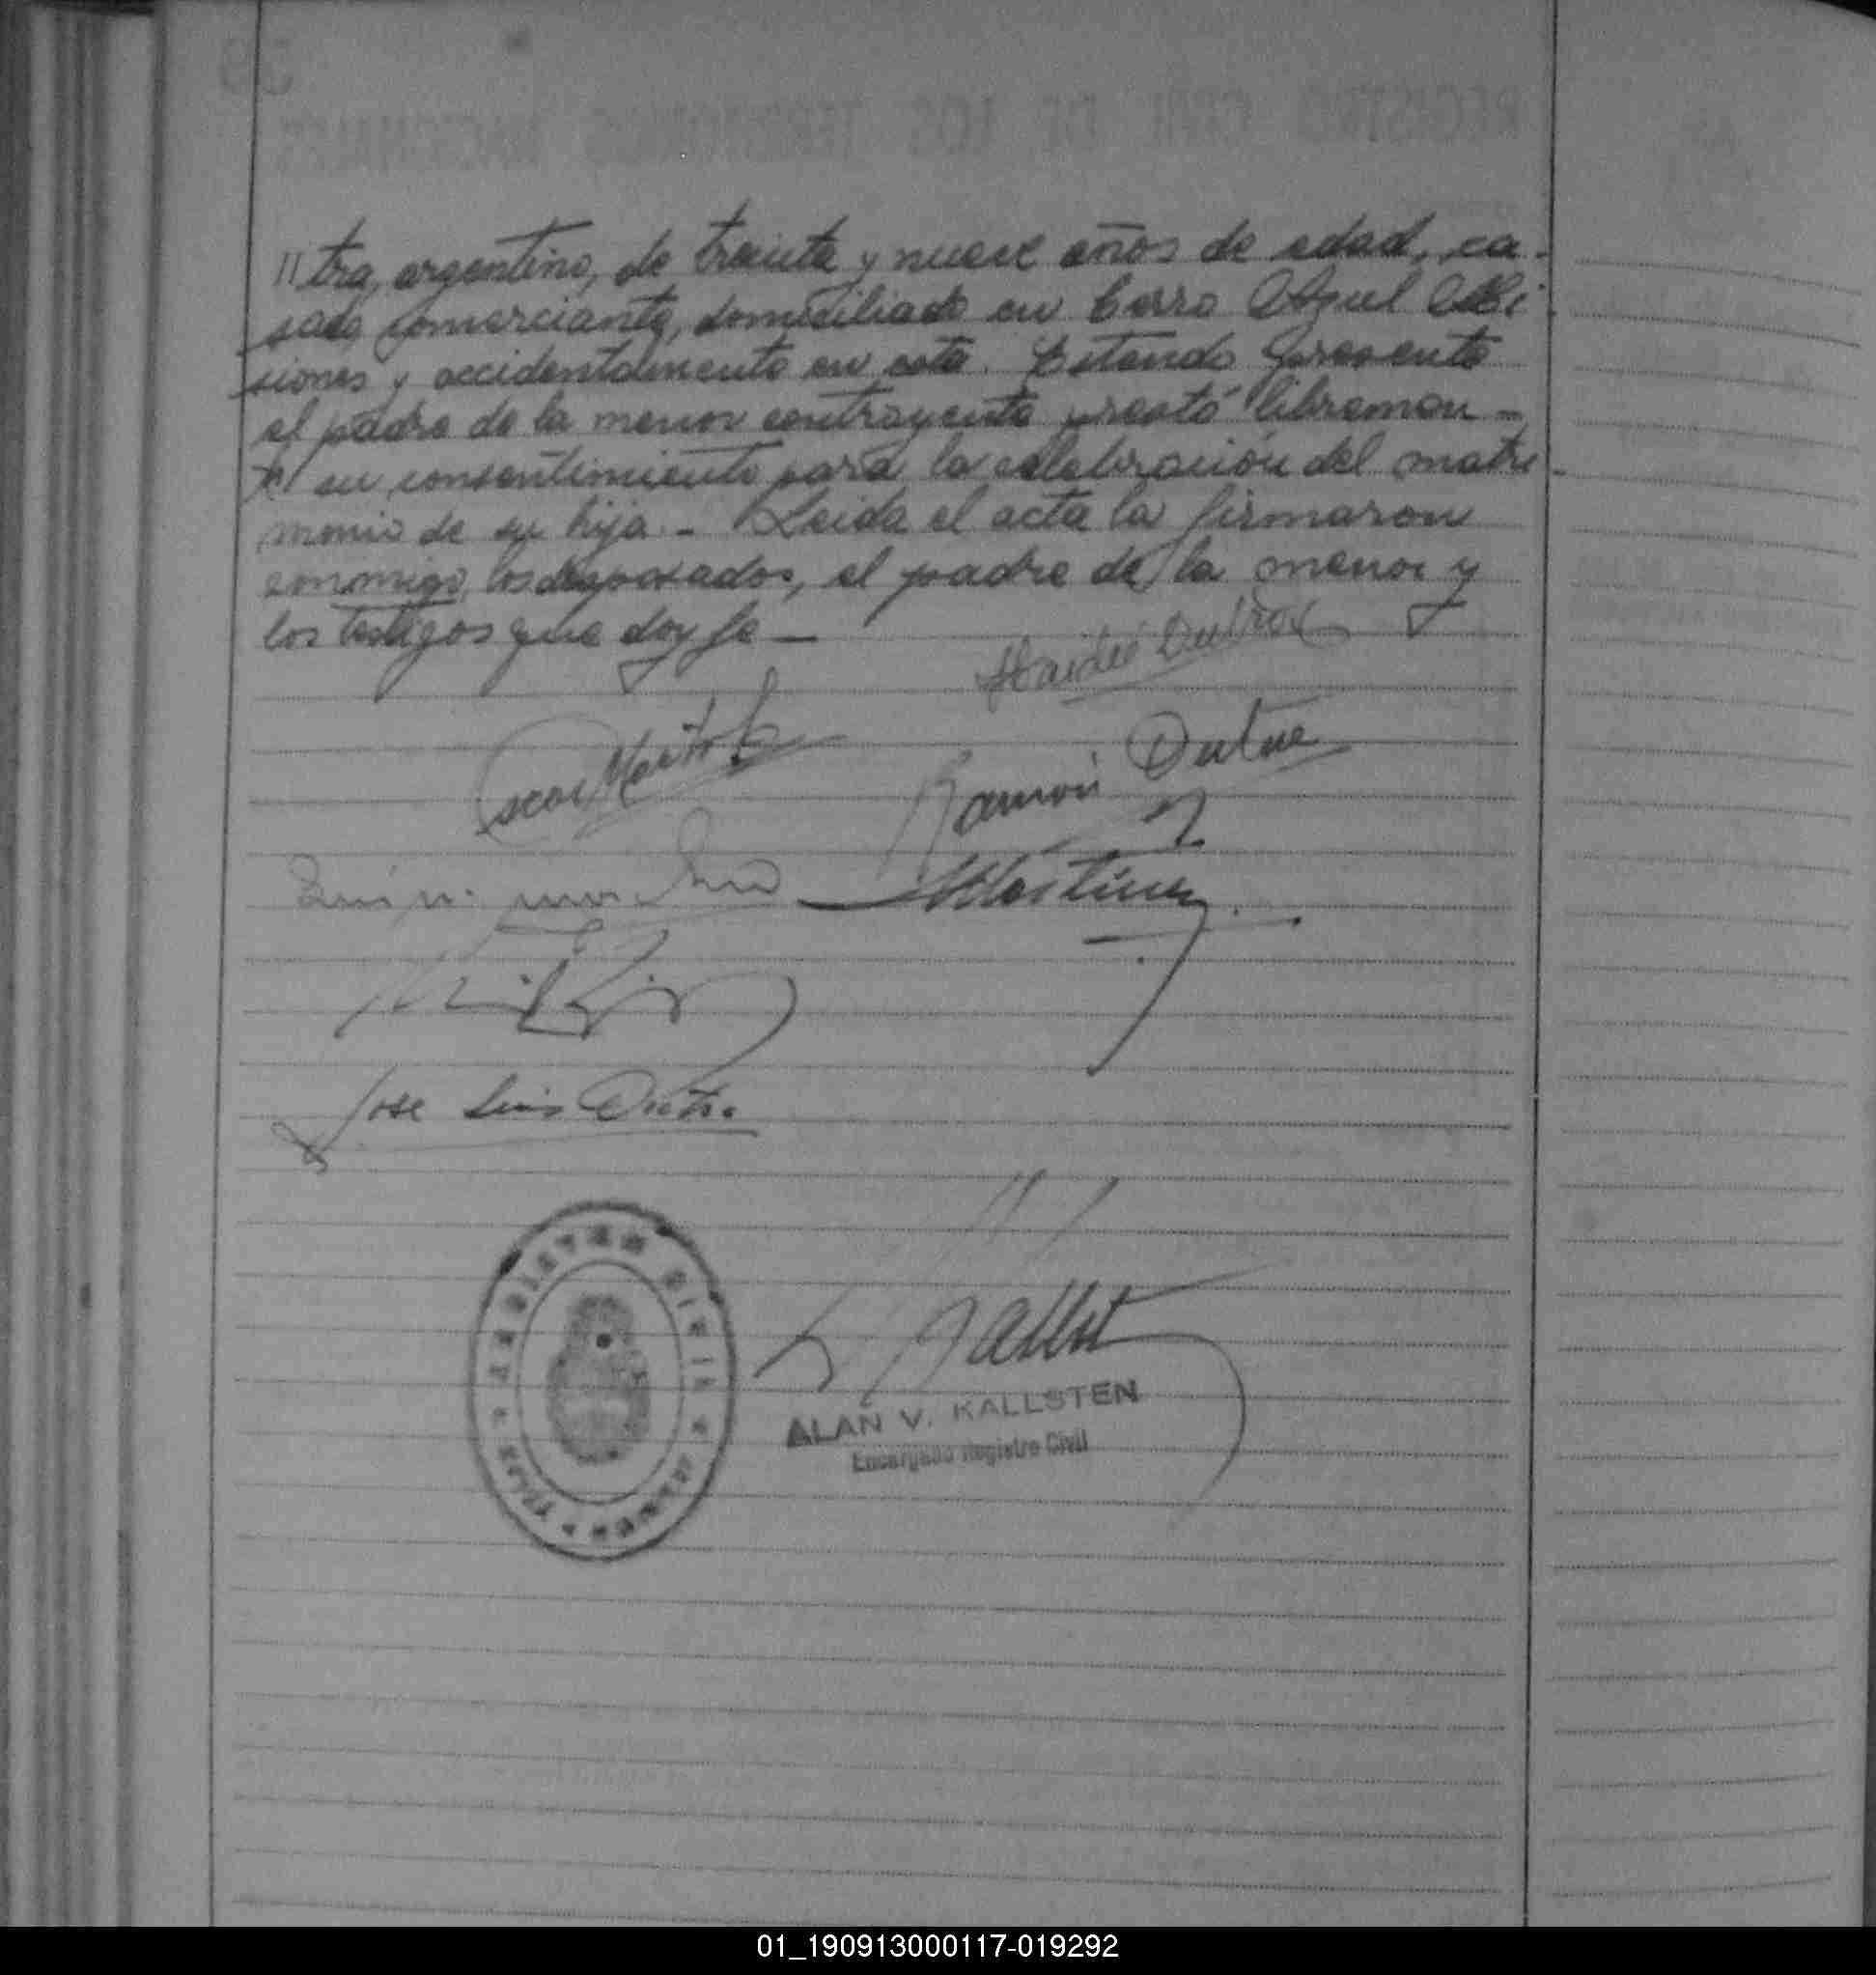 //tra, argentino, de treinta y nueve años de edad, ca-
sado, comerciante, domiciliado en Cerro Azul Mi-
siones y accidentalmente en esta. Estando presente
el padre de la menor contrayente prestó libremen-
te su consentimiento para la celebración del matri-
monio de su hija - Leida el acta la firmaron
conmigo, los desposados, el padre de la menor y
los testigos que doy fe -
Haidée Dutra
Oscar
Ramón Dutra
Martinez
Jose Luis Dutra
REGISTRO CIVIL
ALAN V. KALLSTEN
Encargado Registro Civil
01_190913000117-019292